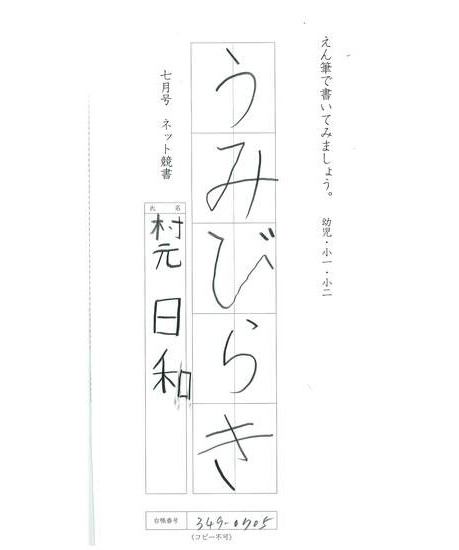 えん筆で書いてみましょう。 幼児・小一・小二
うみびらき
七月号 ネット競書
氏名
村元 日和
台帳番号 349-0705
(コピー不可)